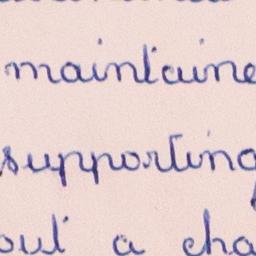 maintaine
supporting
out a cha